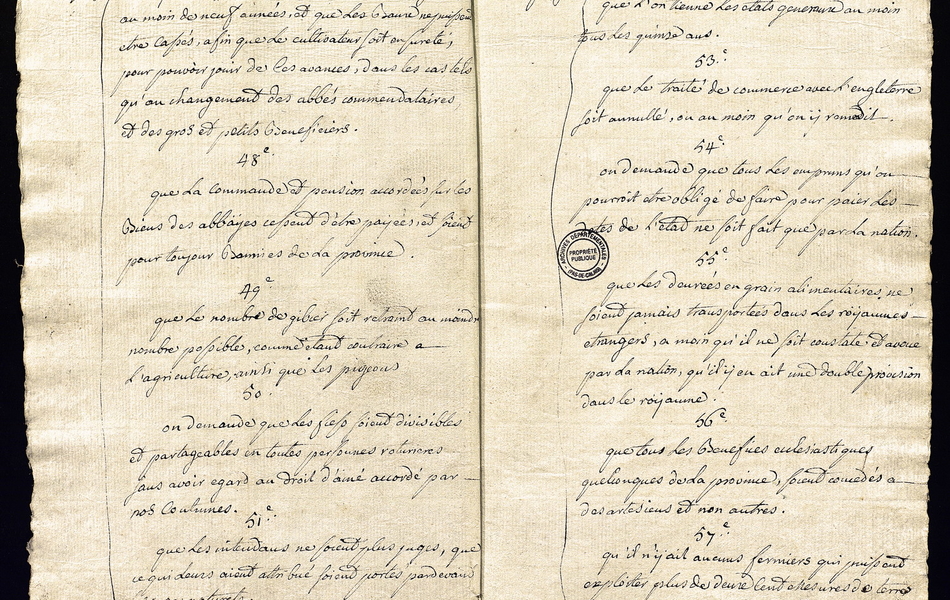 au moin de neuf années, et que les Baux ne puissent
etre Cassés, afin que le cultivateur soit en sureté,
pour pouvoir jouir de ses avances, dans les cas tels
qu'au changement des abbés commendataires
et des gros et petits Beneficiers.
48.e
que la Commande et pension accordées sur les
Biens des abbayes cessent d'être païées, et soient
pour toujour Bannies de la province.
49.e
que le nombre de gibier soit retraint au moindre
nombre possible, comme étant contraire a
L'agriculture, ainsi que les pigeons
50.
on demande que les fiefs soient divisibles
et partageables en toutes personnes roturieres
sans avoir egard au Droit d'ainé accordé par
nos Coutumes.
51.e
que les intendans ne soient plus juges, que
ce qui leurs aient attribué soient portés pardevant
naturels.
que l'on tienne les états generaux au moin
tous les quinze ans.
53.e
que le traité de commerce avec l'engleterre
soit annullé, ou au moin qu'on ij remedit.
54.e
on demande que tous les emprunts qu'on
pourroit etre obligé de faire pour paier les
dettes de L'état ne soit fait que par La nation.
ARCHIVES DÉPARTEMENTALES
PROPRIÉTÉ PUBLIQUE
(PAS-DE-CALAIS)
55.e
que les denrées en grain alimentaires, ne
soient jamais transportées dans les roijaumes
etrangers, a moin qu'il ne soit constaté et avoué
par La nation, qu'il ij en ait une double provision
dans le roijaume.
56.e
que tous les Benefices eclesiastiques
quelconques de La province, soient concedés a
des artesiens et non autres.
57.e
qu'il n'ij ait aucuns fermiers qui puissent
exploiter plus de deux Cent Mesures de terre